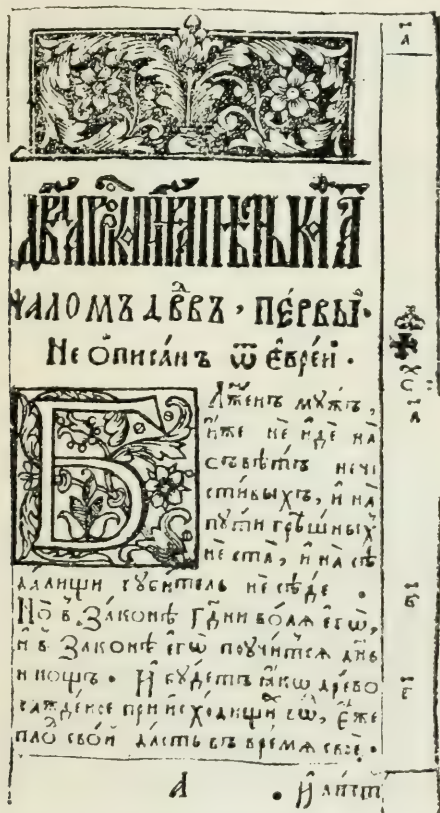 ѰАЛОМЪ ДВ҃ДВЪ · ПЕ́РВЫЙ ·
Не ѻ҆писа́нъ ѿ є҆врє́й ·
Бл҃же́нъ мꙋ́жъ,
и҆́же не и҆́де на
съвѣ́тъ нечⷭ҇
сти́выхъ, и҆ на
пꙋти́ грѣ́шныхъ
не ста̀, и҆ на сѣ
да́лищи гꙋби́тель не сѣ́де ·
Но̀ в̾ Зако́нѣ гⷭ҇дни во́лѧ є҆гѡ̀,
и҆ в̾ Зако́нѣ є҆гѡ̀ поꙋчи́тсѧ дн҃ь
и но́щъ · И҆ бꙋ́детъ ꙗ҆́кѡ дре́во
саждє́ное при и҆схо́дищи вѡ́, є҆́же
пло́ свой да́стъ въ вре́мѧ своѐ ·
А · И҆ ли́ст